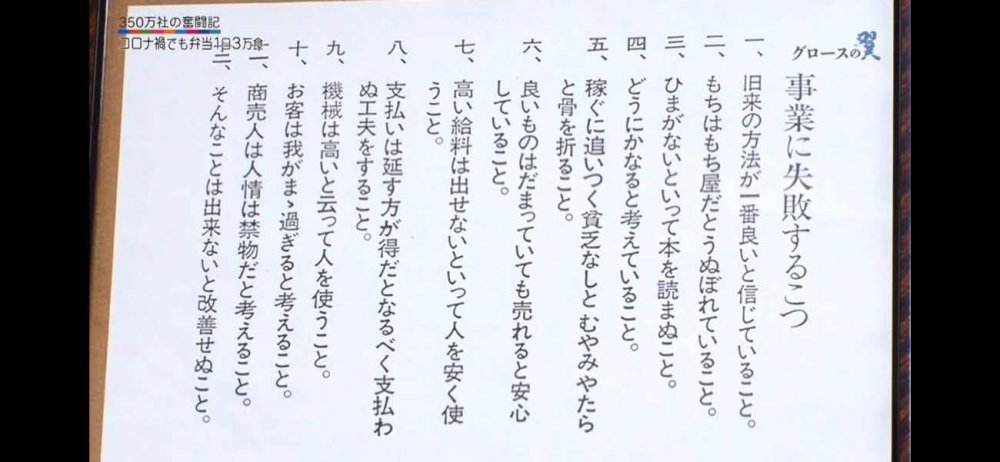 350万社の奮闘記
コロナ禍でも弁当1日3万食
グロースの翼
事業に失敗するこつ
一、旧来の方法が一番良いと信じていること。
二、もちはもち屋だとうぬぼれていること。
三、ひまがないといって本を読まぬこと。
四、どうにかなると考えていること。
五、稼ぐに追いつく貧乏なしとむやみやたら
と骨を折ること。
六、良いものはだまっていても売れると安心
していること。
七、高い給料は出せないといって人を安く使
うこと。
八、支払いは延す方が得だとなるべく支払わ
ぬ工夫をすること。
九、機械は高いと云って人を使うこと。
十、お客は我がまゝ過ぎると考えること。
一、商売人は人情は禁物だと考えること。
二、そんなことは出来ないと改善せぬこと。